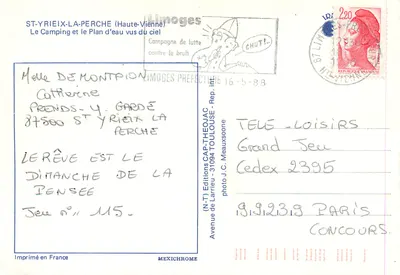 ST-YRIEIX-LA-PERCHE (Haute-Vienne)
Le Camping et le Plan d'eau vus du ciel
Limoges
Campagne de lutte
contre le bruit
CHUT!
LIMOGES PREFECTURE 16-5-88
2,20
Melle DEMONTPION
Catherine
PRENDS-Y GARDE
87500 ST YRIEIX LA
PERCHE
LE RÊVE EST LE
DIMANCHE DE LA
PENSEE
Jeu n° 115.
(N-T) Editions CAP-THEOJAC
Avenue de Larrieu - 31094 TOULOUSE - Rep. int.
photo J.C. Meauxsoone
TELE-LOISIRS
Grand Jeu
Cedex 2395
99239 PARIS
CONCOURS
Imprimé en France
MEXICHROME